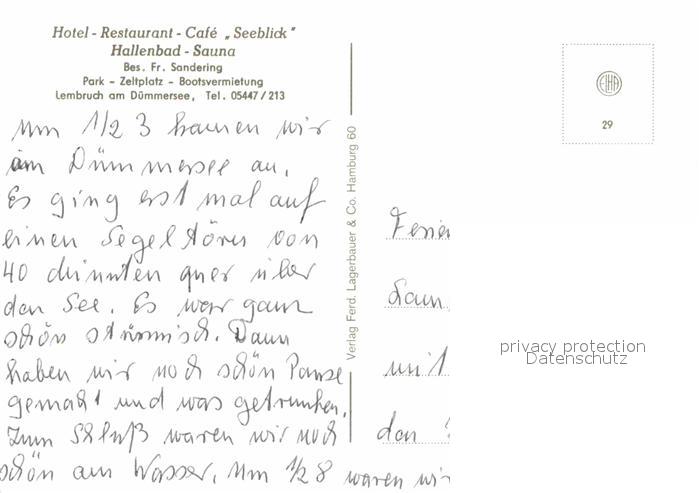 Hotel - Restaurant - Café „Seeblick"
Hallenbad - Sauna
Bes. Fr. Sandering
Park - Zeltplatz - Bootsvermietung
Lembruch am Dümmersee, Tel. 05447/213
Um 1/2 3 kamen wir
am Dümmersee an.
Es ging erst mal auf
einen Segeltörn von
40 Minuten quer über
den See. Es war ganz
schön stürmisch. Dann
haben wir noch schön Pause
gemacht und was getrunken.
Zum Schluß waren wir noch
schön am Wasser. Um 1/2 8 waren wir
Verlag Ferd. Lagerbauer & Co. Hamburg 60
EHA
29
Ferien
mit
den
privacy protection
Datenschutz